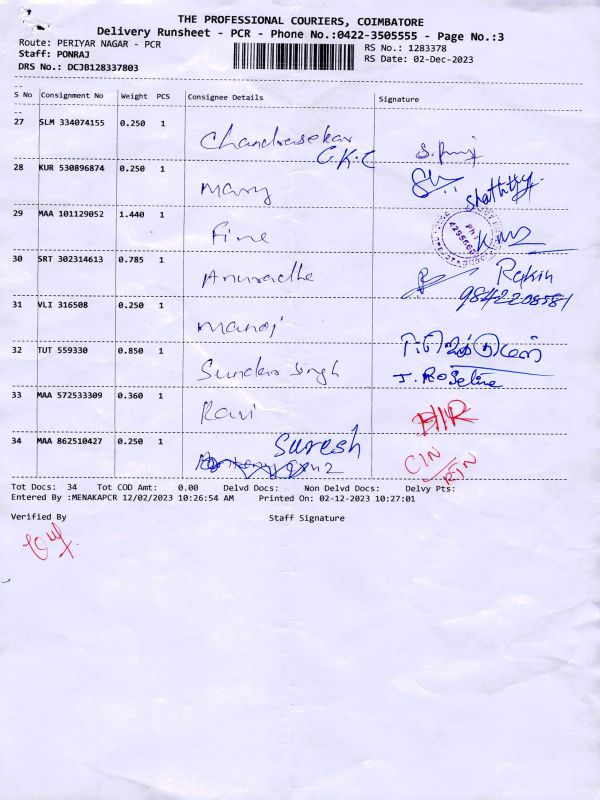 THE PROFESSIONAL COURIERS, COIMBATORE
Delivery Runsheet - PCR - Phone No.:0422-3505555 - Page No.:3
Route: PERIYAR NAGAR - PCR
RS No.: 1283378
Staff: PONRAJ
RS Date: 02-Dec-2023
DRS No.: DCJB128337803
S No Consignment No Weight PCS Consignee Details Signature
27 SLM 334074155 0.250 1
Chandrasekar
G.K.C
28 KUR 530896874 0.250 1
Mary
29 MAA 101129052 1.440 1
Fine
30 SRT 302314613 0.785 1
Anuradha
9842208581
31 VLI 316508 0.250 1
Manoj
32 TUT 559330 0.850 1
Sundar Singh
J. Roseline
33 MAA 572533309 0.360 1
Ravi
34 MAA 862510427 0.250 1
Suresh
CIN
RTN
Tot Docs: 34 Tot COD Amt: 0.00 Delvd Docs: Non Delvd Docs: Delvy Pts:
Entered By :MENAKAPCR 12/02/2023 10:26:54 AM Printed On: 02-12-2023 10:27:01
Verified By Staff Signature